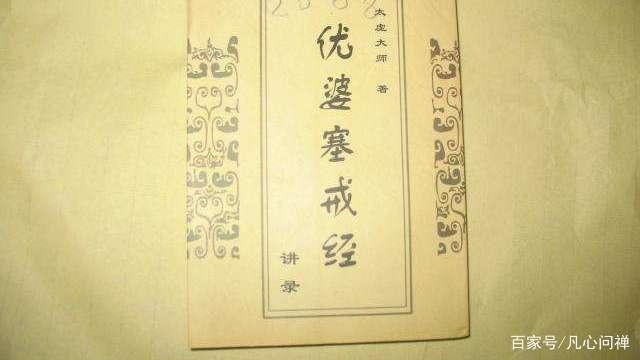 太虚大师 著
优婆塞戒经
讲录
百家号/凡心问禅